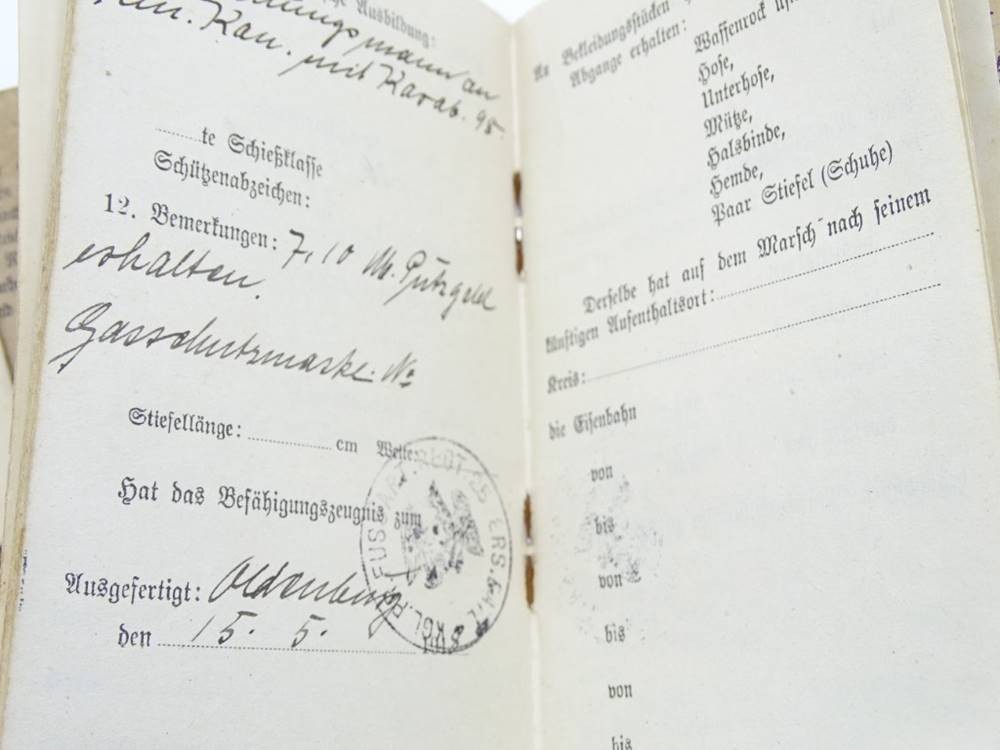 Ausbildung:
mit Karab. 98.
te Schießklasse
Schützenabzeichen:
12. Bemerkungen: 7,10 M. Putzgeld
erhalten.
Gasschutzmaske No
Stiefellänge: cm Weite:
Hat das Befähigungszeugnis zum
Ausgefertigt: Oldenburg
den 15. 5.
FUSSART ERS.
An Bekleidungsstücken
Abgange erhalten: Waffenrock
Hose,
Unterhose,
Mütze,
Halsbinde,
Hemde,
Paar Stiefel (Schuhe)
Derselbe hat auf dem Marsch nach seinem
künftigen Aufenthaltsort:
Kreis:
die Eisenbahn
von
bis
von
bis
von
bis